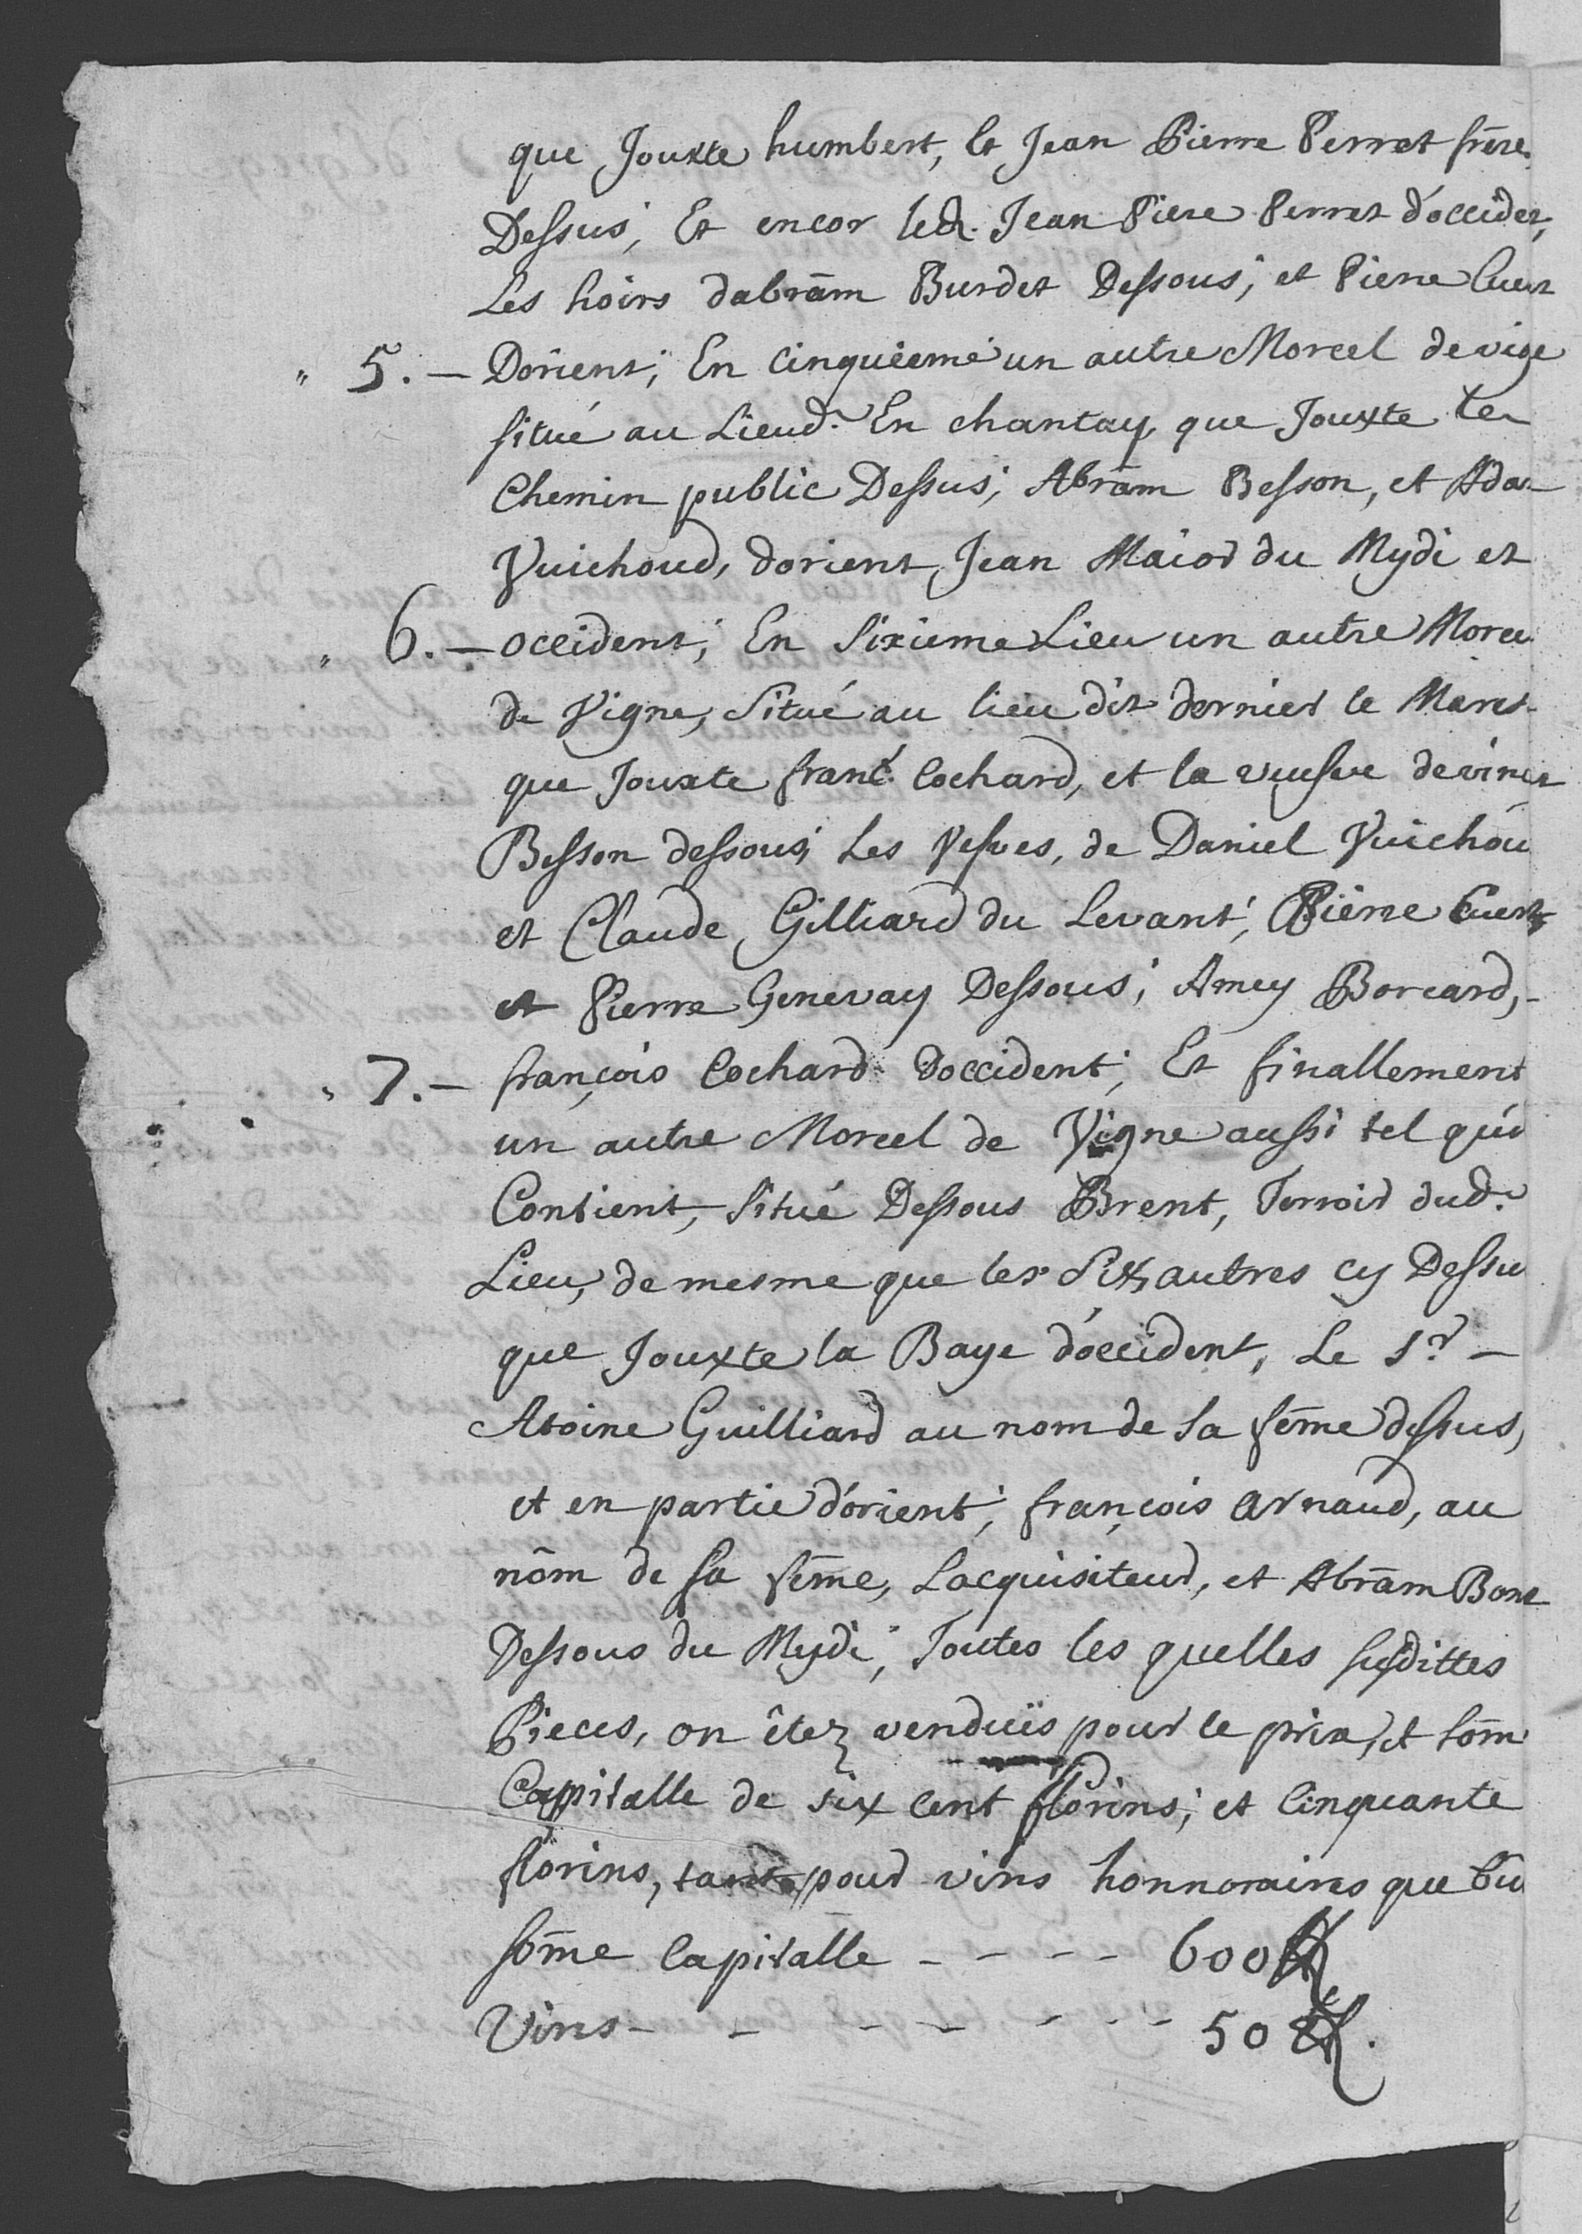 que Jouxte humbert, et Jean Pierre Perret frere
Dessus; Et encor led. Jean Piere Perret d'occidet,
Les hoirs dabrãm Burdet Dessous; et Pierre Cuert
" 5. — Dorient; En Cinquieme un autre Morcel de vige
situé au Lieud. En chantay que Jouxte le
Chemin public Dessus; Abrãm Besson, et Ada-
Vuichoud, dorient, Jean Maior du Mydi et
" 6. — occident; En Sixieme Lieu un autre Morce
de Vigne, Situé au lieu dit dernier le Maret
que Jouxte franc. Cochard, et la veufve de vincet
Besson dessous; Les Vefves, de Daniel Vuichou
et Claude Gilliard du Levant; Pierre Cuert
et Pierre Genevay Dessous; Amey Borcard,-
" 7. — françois Cochard doccident; Et finallement
un autre Morcel de Vigne aussi tel qu'i
Contient, Situé Dessous Brent, Terroir dud.
Lieu, de mesme que les Six autres cy Dessu
que Jouxte la Baye d'occident, Le Sr. —
Atoine Guilliard au nom de Sa fẽme dessus,
et en partie d'orient; françois Arnaud, au
nõm de Sa fẽme, Lacquisiteur, et Abrãm Bont
Dessous du Mydi; Toutes les quelles susdittes
Pieces, on êtez venduës pour le prix, et sõm
Capitalle de six cent florins; et Cinquante
florins, tant pour vins honnoraires que bu
sõme Capitalle - - - - 600 ff
Vins - - - - - - - 50 ff.